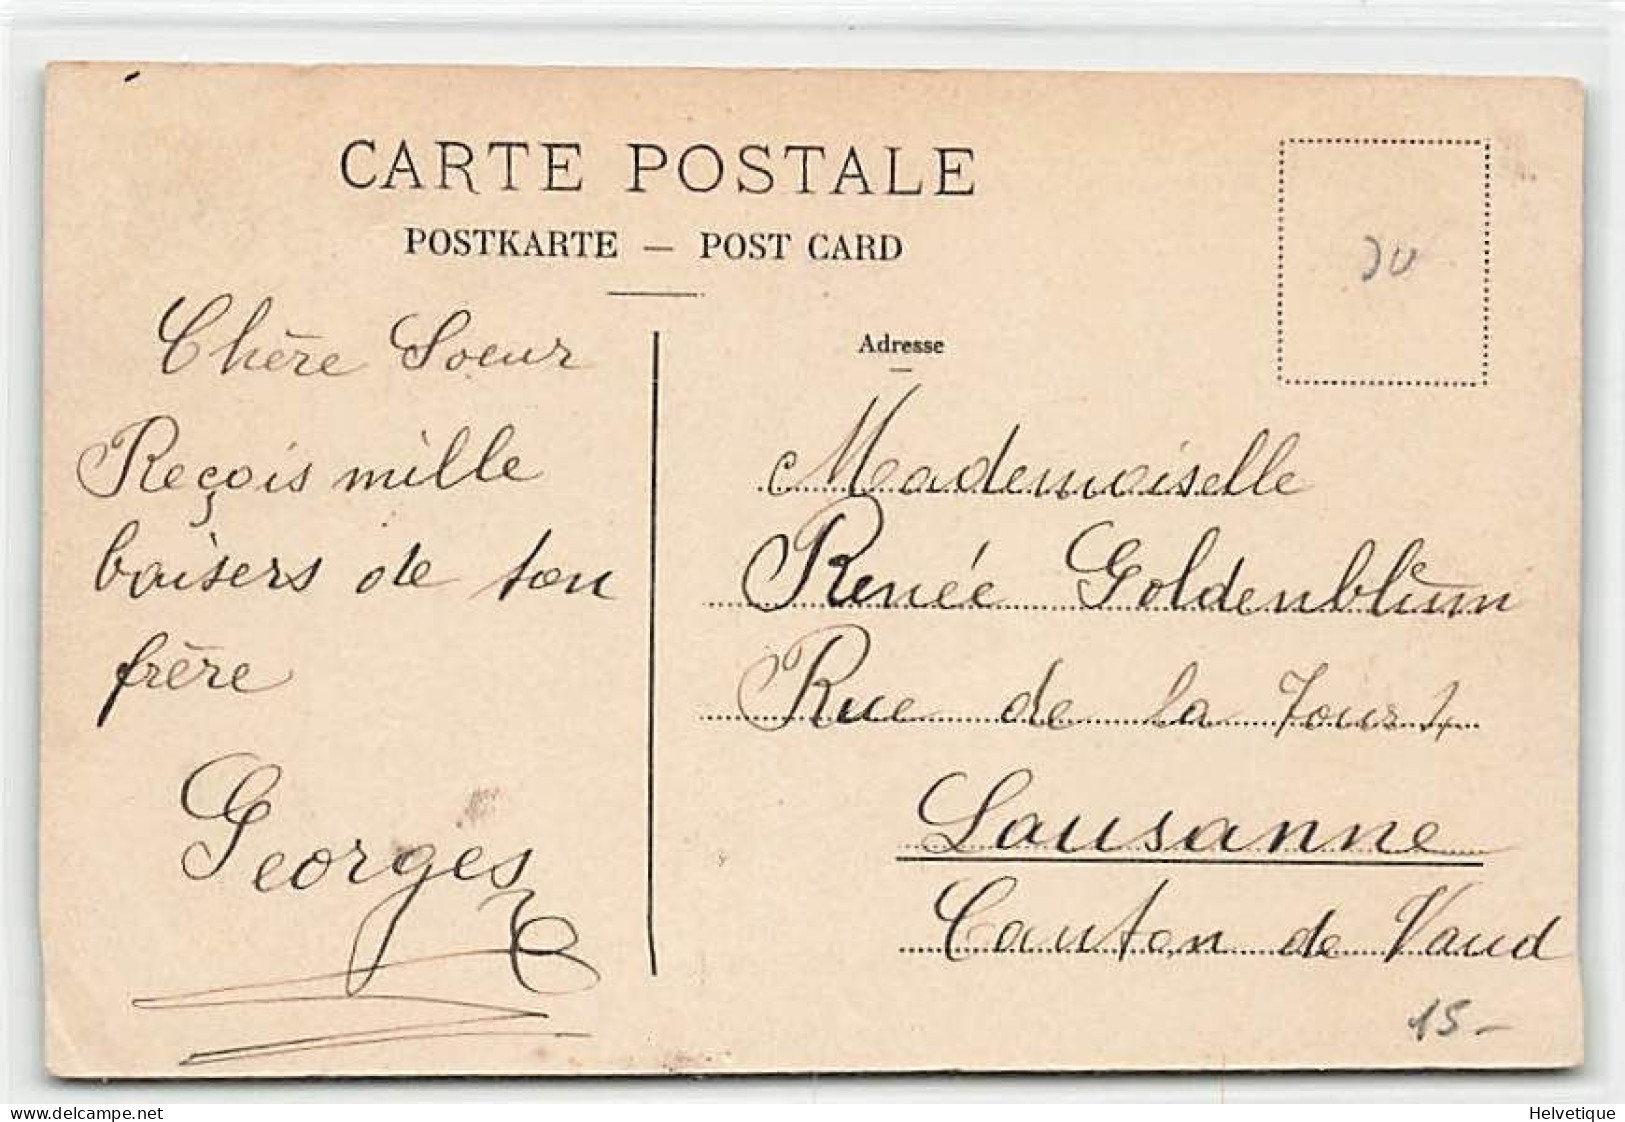 CARTE POSTALE
POSTKARTE — POST CARD
Chère Soeur
Reçois mille
baisers de ton
frère
Georges
Adresse
Mademoiselle
Renée Goldenblum
Rue de la Tour
Lausanne
Canton de Vaud
15-
www.delcampe.net
Helvetique